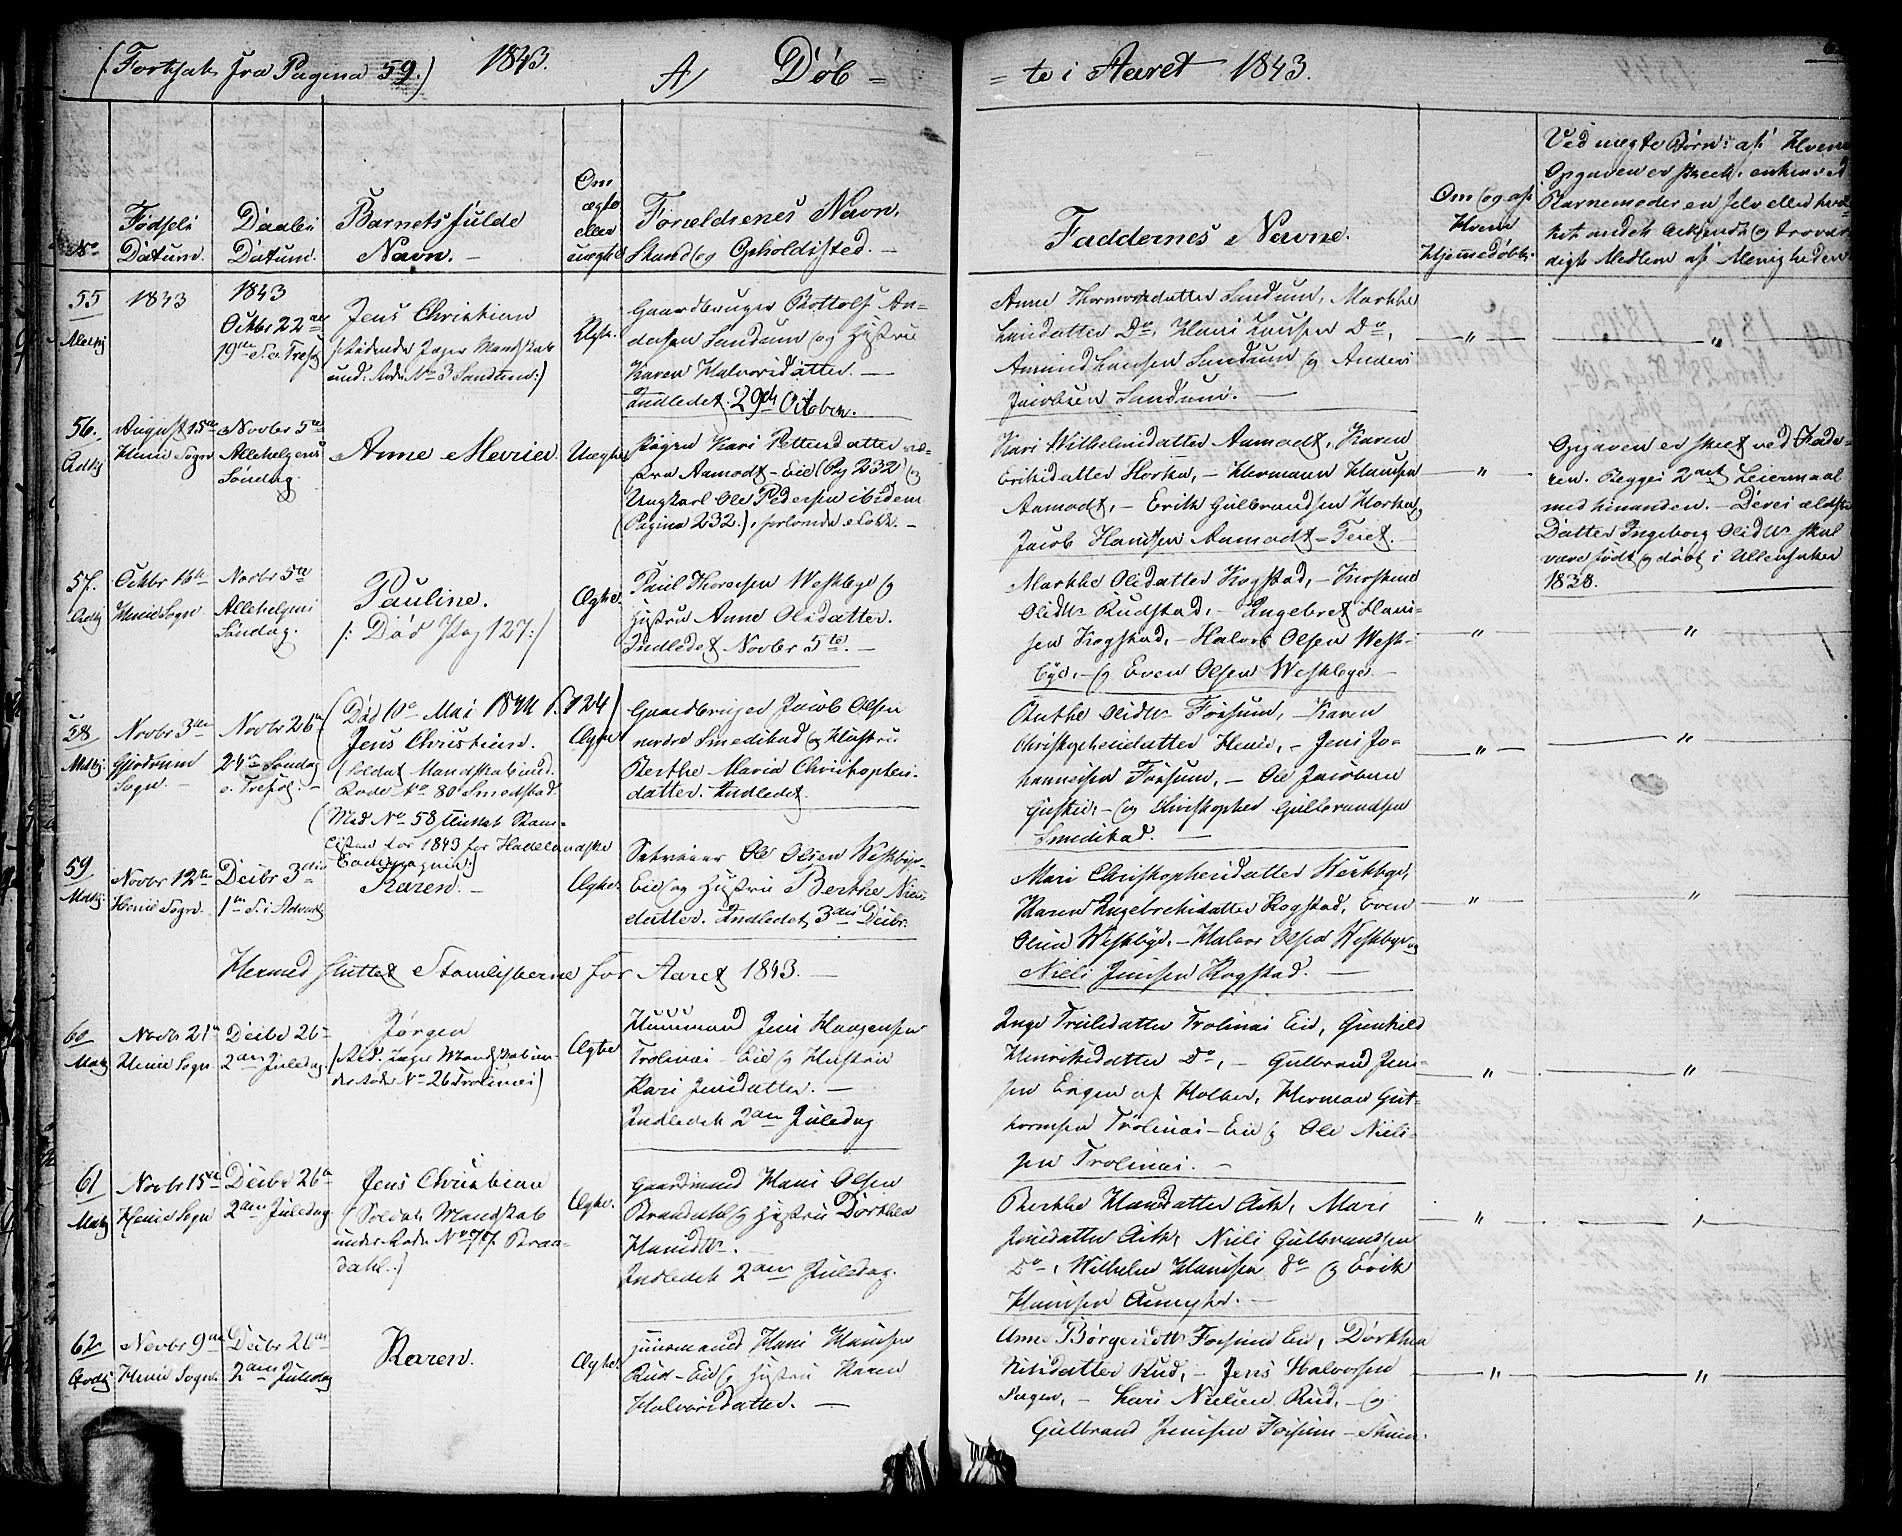 (Fortsat fra Pagina 59.) 1843. A) Døb-
-te i Aaret 1843.
No
Fødsels Datum.
Daabs Datum.
Barnets fulde Navn.
Om ægte eller uægte
Forældrenes Navn, Stand og Opholdssted.
Faddernes Navne.
Om og af Hvem Hjemmedøbt.
Ved uægte Børn: af Hvem
Opgaven er skeet, enten ved
Barnemoderen selv eller hvil-
ket andet bekjendt og trovær-
digt Medlem af Menigheden
55
1843
1843
Octbr 22de
19de S. e. Tref.
Jens Christian
und: Rode No 3 Sandum:)
Ægte.
Gaardbruger Bottolf An-
dersen Sandum og Hustru
Karen Halvorsdatter. —
Indledet 29de October.
Anne Thormodsdatter Sandum, Marthe
Larsdatter Do, Hans Larsen Do,
Amund Larsen Sandum og Anders
Jacobsen Sandum. —
"
"
56.
August 15de
Novbr 5te
Allehelgens Søndag.
Anne Marie
Uægte
Pigen Kari Pettersdatter
fra Aamodt-Eie (Pag 232) og
Ungkarl Ole Pedersen ibidem
(Pagina 232.), forlovede Folk. —
Kari Wilhelmsdatter Aamodt, Karen
Eriksdatter Horka, — Hermann Hansen
Aamodt, — Erik Gulbrandsen Horka og
Jacob Hansen Aamodt-Teiet.
"
Opgaven er skeet ved Fade-
ren. Begges 2det Leiermaal
med hinanden. — Deres ældste
Datter Ingeborg Olsdtr skal
være født og døbt i Ullensaker
1838.
57.
Octbr 16de
Novbr 5te
Allehelgens Søndag.
Pauline.
/: Død Pag 127:/
Ægte.
Paul Thoresen Westbye og
Hustru Anne Olsdatter.
Indledet Novbr 5te. —
Marthe Olsdatter Kogstad, — Kirstine
Olsdtr Rudstad, — Ingebret Han-
sen Kogstad, — Halvor Olsen West-
bye, — og Even Olsen Westbye.
"
"
58
Novbr 3die
Gjerdrum Sogn. —
Novbr 26de
24de Søndag
e. Tref. —
(Død 10de Mai 1844 P. 124)
Jens Christian.
(Soldat Mandskab und.
Rode No 80 Smedstad
(Med No 58 sluttet Stam-
listen for 1843 for Hadelandske
Compagnie:)
Ægte
Gaardbruger Jacob Olsen
nordre Smedstad og Hustru
Berthe Maria Christophers-
datter. Indledet.
Berthe Olsdtr Fossum, — Karen
Christophersdatter Henie, — Jens Jo-
hannesen Fossum, — Ole Jacobsen
og Christopher Gulbrandsen
Smedstad. —
"
"
59
Novbr 12te
Henie Sogn
Decbr 3die
1ste S. i Advent
Karen. —
Ægte.
Selveier Ole Olsen Westbye-
Eie og Hustru Berthe Niels-
datter. Indledet 3die Decbr.
Mari Christophersdatter Westbye,
Karen Ingebretsdatter Kogstad, Even
Olsen Westbye, — Halvor Olsen Westbye og
Niels Jensen Kogstad. —
"
"
Hermed sluttet Stamlisterne for Aaret 1843. —
60
Novbr 21de
Henie Sogn
Decbr 26de
2den Juledag.
Jørgen
der Rode No 26 Trolsnæs)
Ægte
Huusmand Jens Haagensen
Trolsnæs-Eie og Hustru
Kari Jensdatter. —
Indledet 2den Juledag
Inge Trulsdatter Trolsnæs Eie, Gunhild
Henriksdatter Do, — Gulbrand Jen-
sen Engen af Holter, Herman Gut-
tormsen Trolsnæs-Eie og Ole Niel-
sen Trolsnæs. —
"
"
61
Novbr 15de
Henie Sogn
Decbr 26de
2den Juledag.
Jens Christian
(Soldat Mandskab
under Rode No 77. Braa-
dahl.)
Ægte.
Gaardmand Hans Olsen
Braadahl og Hustru Dorthea
Hansdtr. —
Indledet 2den Juledag.
Berthe Hansdatter Ask, Mari
Jensdatter Ask, Niels Gulbrandsen
Do, Wilhelm Hansen do og Erik
Hansen —
"
62
Novbr 9de
Henie Sogn.
Decbr 26de
2den Juledag
Karen.
Ægte.
Huusmand Hans Hansen
Rud-Eie og Hustru Karen
Halvorsdatter. —
Anne Børgersdtr Fossum Eie, Dorthea
Nilsdatter Rud, — Jens Halvorsen
— Lars Nielsen Rud, — og
Gulbrand Jensen Fossum
"
"